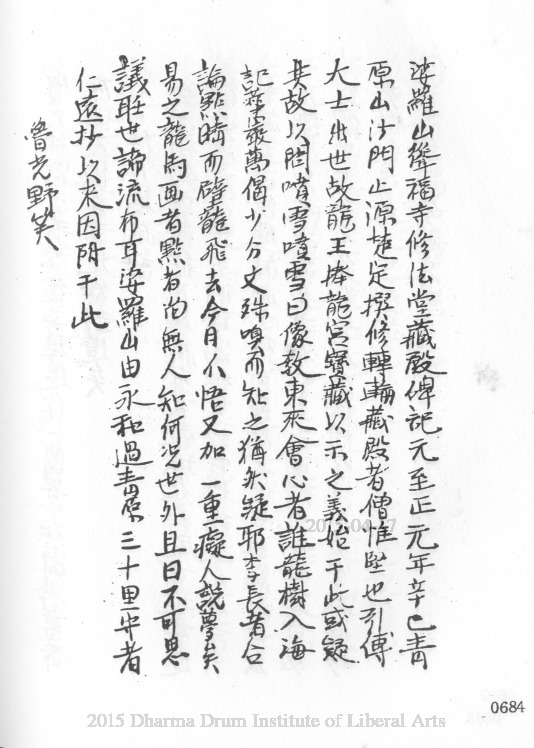 婆羅山聳福寺修法堂藏殿碑記元至正元年辛巳青
原山沙門止源楚定撰修轉輪藏殿者僧惟堅也引傅
大士出世故龍王捧龍宮寶藏以示之義始于此或疑
其故以問噴雪噴雪曰像教東來會心者誰龍樹入海
記華嚴萬偈少分文殊嗅而知之猶然疑耶李長者合
論點睛而壁龍飛去今日不悟又加一重癡人說夢矣
易之龍馬画者點者尚無人知何況世外且曰不可思
議耶世諦流布耳婆羅山由永和過青原三十里安者
仁遠抄以来因附于此
魯光野笑
2015.04.17
0684
2015 Dharma Drum Institute of Liberal Arts